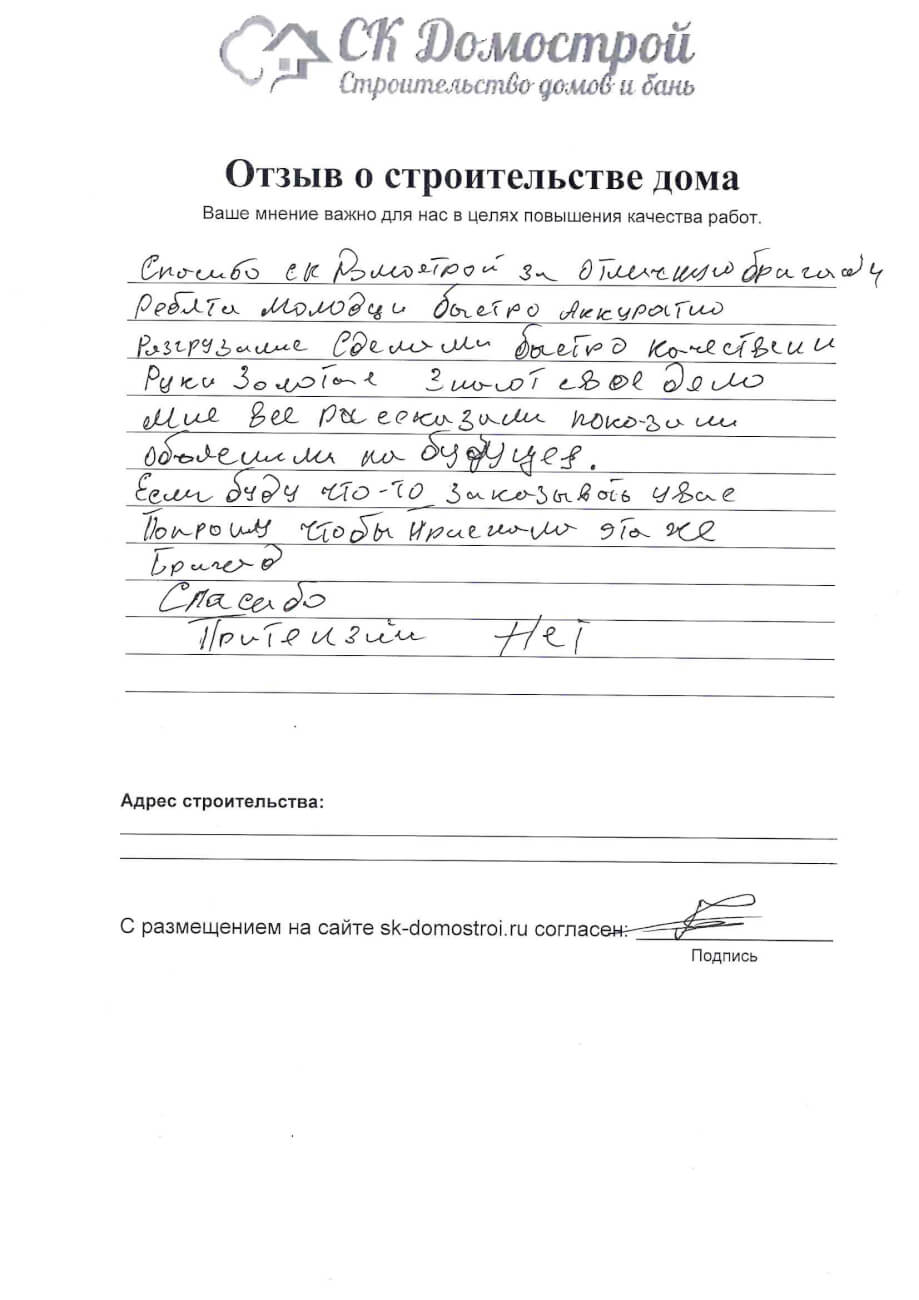 СК Домострой
Строительство домов и бань
Отзыв о строительстве дома
Ваше мнение важно для нас в целях повышения качества работ.
Спосибо ск Домострой за отличную бригаду
Ребята молодци быстро Аккуратно
Разгрузили Сделали быстро качествени
Руки Золотые Знают свое дело
Мне все рассказали показали
объяснили на будущея.
Если буду что-то заказывать у вас
Попрошу чтобы прислали эта же
Бригад
Спасибо
Притензий Нет
Адрес строительства:
С размещением на сайте sk-domostroi.ru согласен:
Подпись